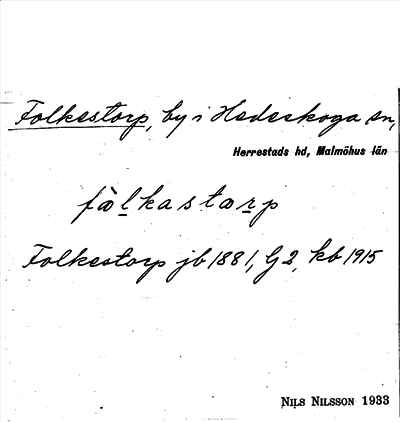 Folkestorp, by i Hedeskoga sn,
Herrestads hd, Malmöhus län
fàlkastarp
Folkestorp jb 1881, G 2, kb 1915
NILS NILSSON 1933